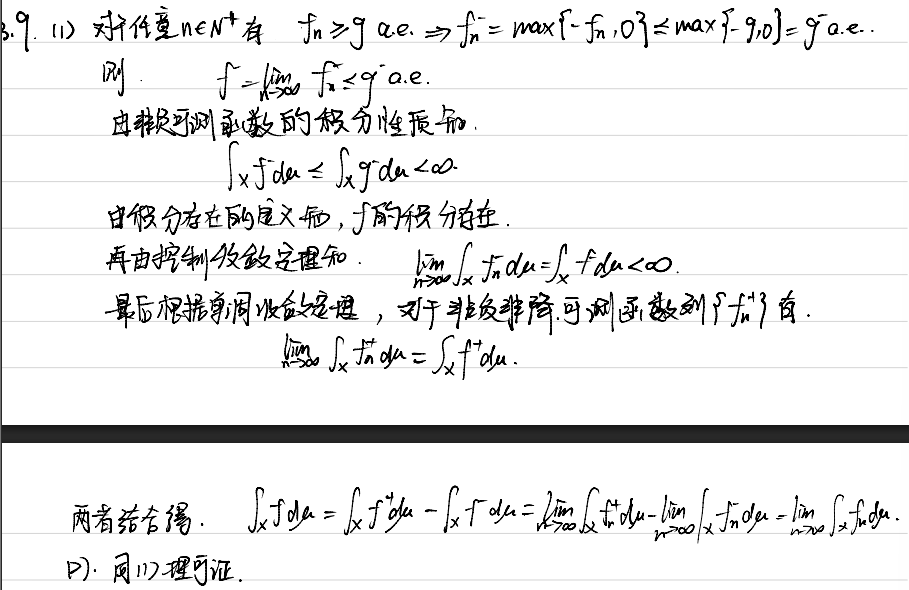 3.9. (1) 对于任意 n∈N⁺ 有 fₙ ≥ g a.e. ⇒ fₙ⁻ = max{-fₙ, 0} ≤ max{-g, 0} = g⁻ a.e..
则. f⁻ = lim_{n→∞} fₙ⁻ ≤ g⁻ a.e.
由非负可测函数的积分性质知.
∫_X f⁻ dμ ≤ ∫_X g⁻ dμ < ∞.
由积分存在的定义知, f的积分存在.
再由控制收敛定理知. lim_{n→∞} ∫_X fₙ⁻ dμ = ∫_X f⁻ dμ < ∞.
最后根据单调收敛定理, 对于非负非降可测函数列{fₙ⁺}有.
lim_{n→∞} ∫_X fₙ⁺ dμ = ∫_X f⁺ dμ.
两者结合得. ∫_X f dμ = ∫_X f⁺ dμ - ∫_X f⁻ dμ = lim_{n→∞} ∫_X fₙ⁺ dμ - lim_{n→∞} ∫_X fₙ⁻ dμ = lim_{n→∞} ∫_X fₙ dμ.
(2). 同(1)理可证.